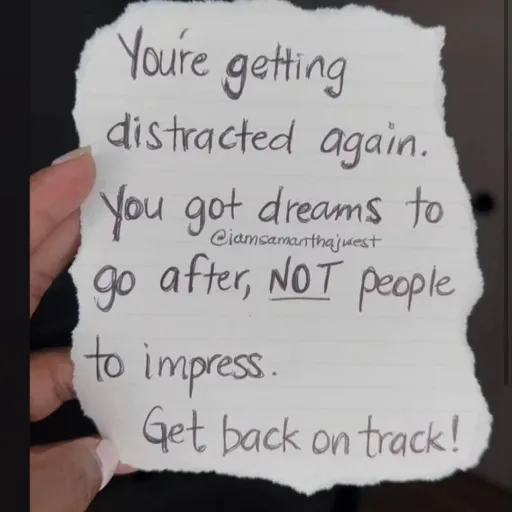 You're getting
distracted again.
You got dreams to
@iamsamanthajwest
go after, NOT people
to impress.
Get back on track!